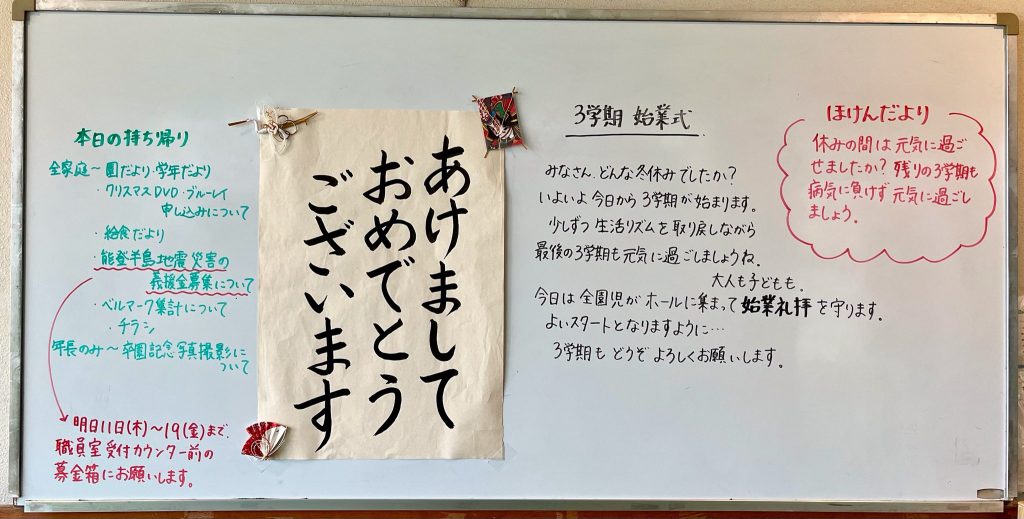 本日の持ち帰り
全家庭～園だより・学年だより
・クリスマスDVD・ブルーレイ
申し込みについて
・給食だより
・能登半島地震災害の
義援金募集について
・ベルマーク集計について
・チラシ
年長のみ～卒園記念写真撮影に
ついて
明日11日(木)～19(金)まで、
職員室受付カウンター前の
募金箱にお願いします。
あけまして
おめでとう
ございます
3学期 始業式
みなさん、どんな冬休みでしたか?
いよいよ今日から3学期が始まります。
少しずつ生活リズムを取り戻しながら
最後の3学期も元気に過ごしましょうね。
大人も子どもも。
今日は全園児がホールに集まって始業礼拝を守ります。
よいスタートとなりますように…
3学期もどうぞよろしくお願いします。
ほけんだより
休みの間は元気に過ご
せましたか?残りの3学期も
病気に負けず元気に過ごし
ましょう。